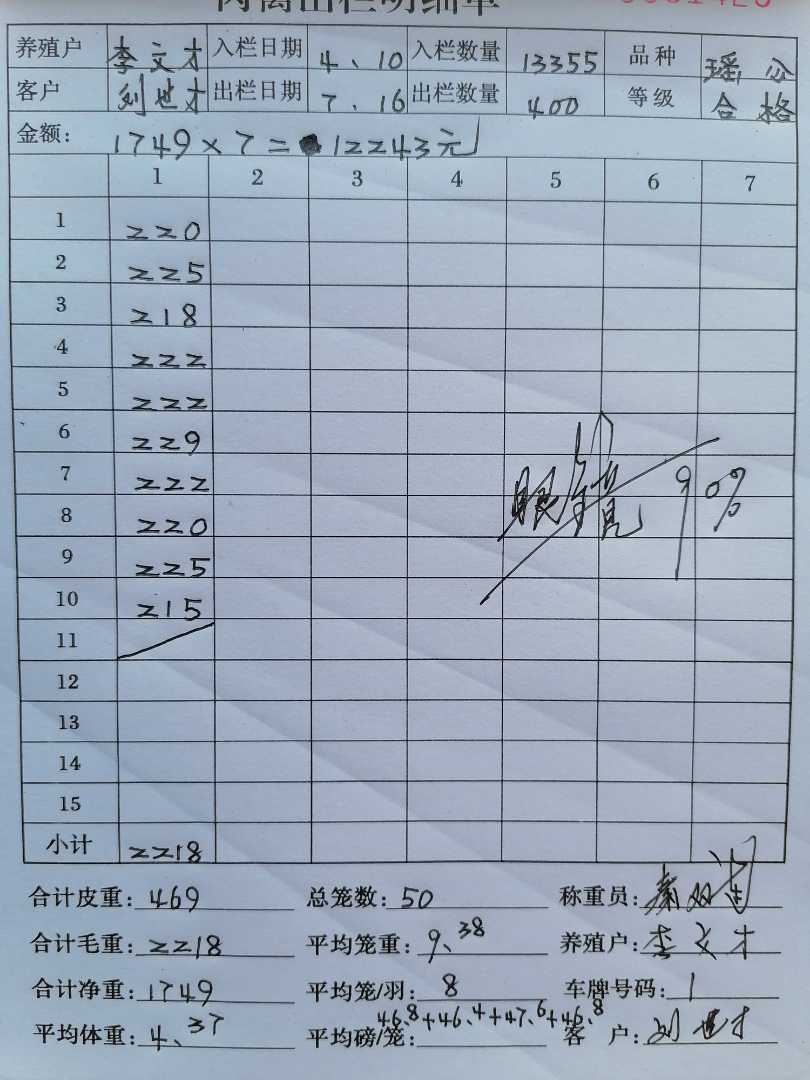 肉禽出栏明细单
养殖户 李文才 入栏日期 4、10 入栏数量 13355 品种 瑶公
客户 刘世才 出栏日期 7、16 出栏数量 400 等级 合格
金额: 1749×7=12243元
1 2 3 4 5 6 7
1 220
2 225
3 218
4 222
5 222
6 229
7 222
眼镜 90%
8 220
9 225
10 215
11
12
13
14
15
小计 2218
合计皮重: 469 总笼数: 50 称重员: 秦双
合计毛重: 2218 平均笼重: 9、38 养殖户: 李文才
合计净重: 1749 平均笼/羽: 8 车牌号码: 1
平均体重: 4、37 平均磅/笼: 46.8+46.4+47.6+46.8 客 户: 刘世才